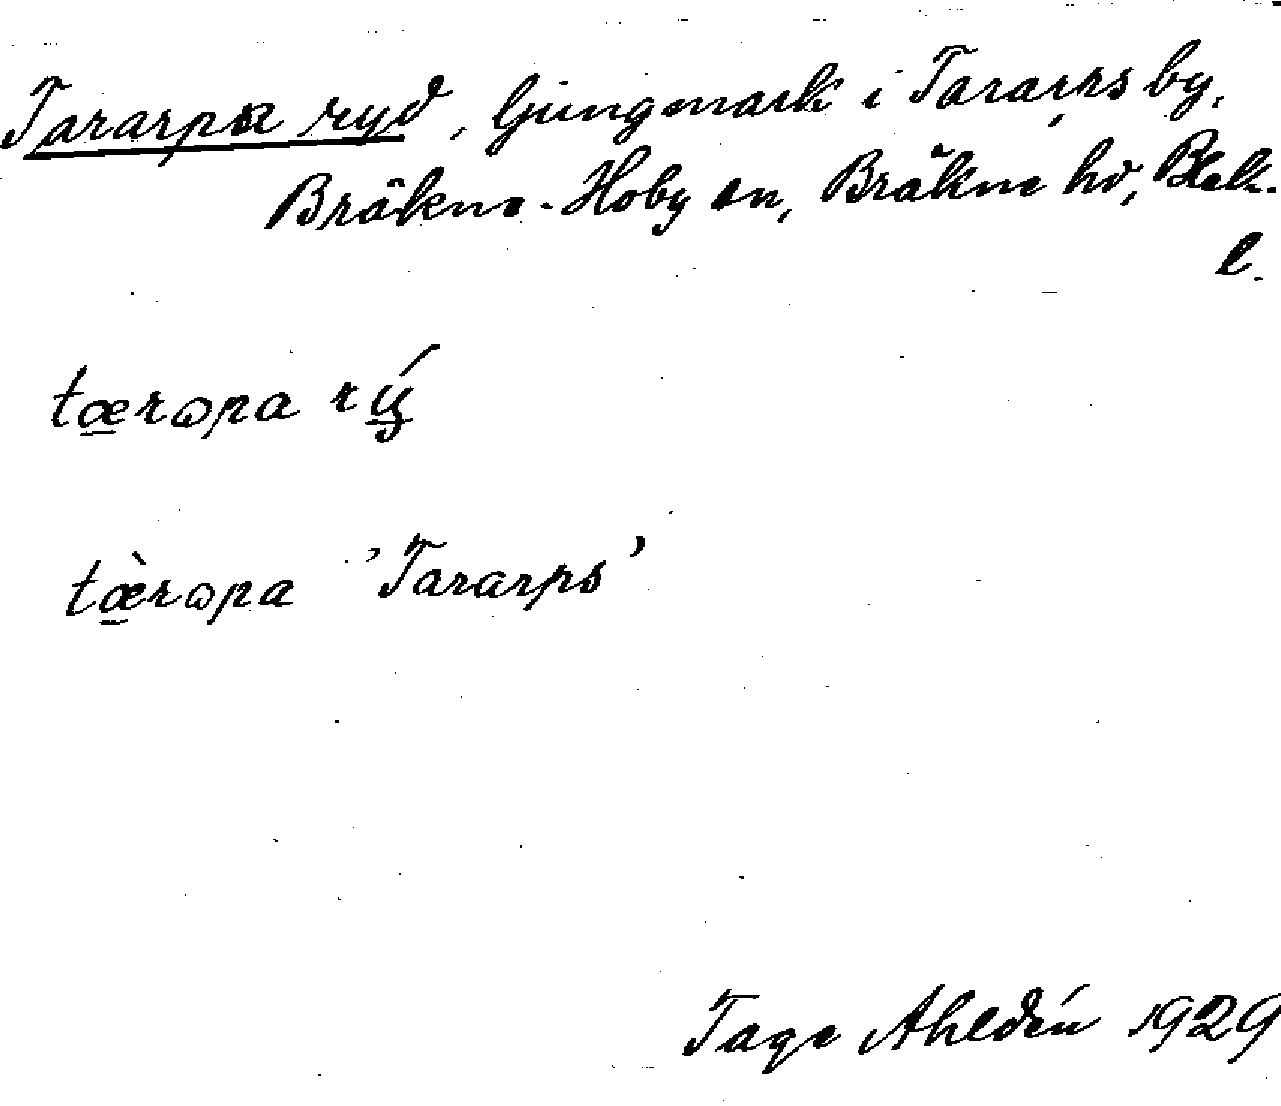 Tararpa ryd, ljungmark i Tararps by,
Bräkne-Hoby sn, Bräkne hd, Blek.
l.
tæ̱rɷpa rý̱
tæ̱̀rɷpa 'Tararps'
Tage Ahldén 1929